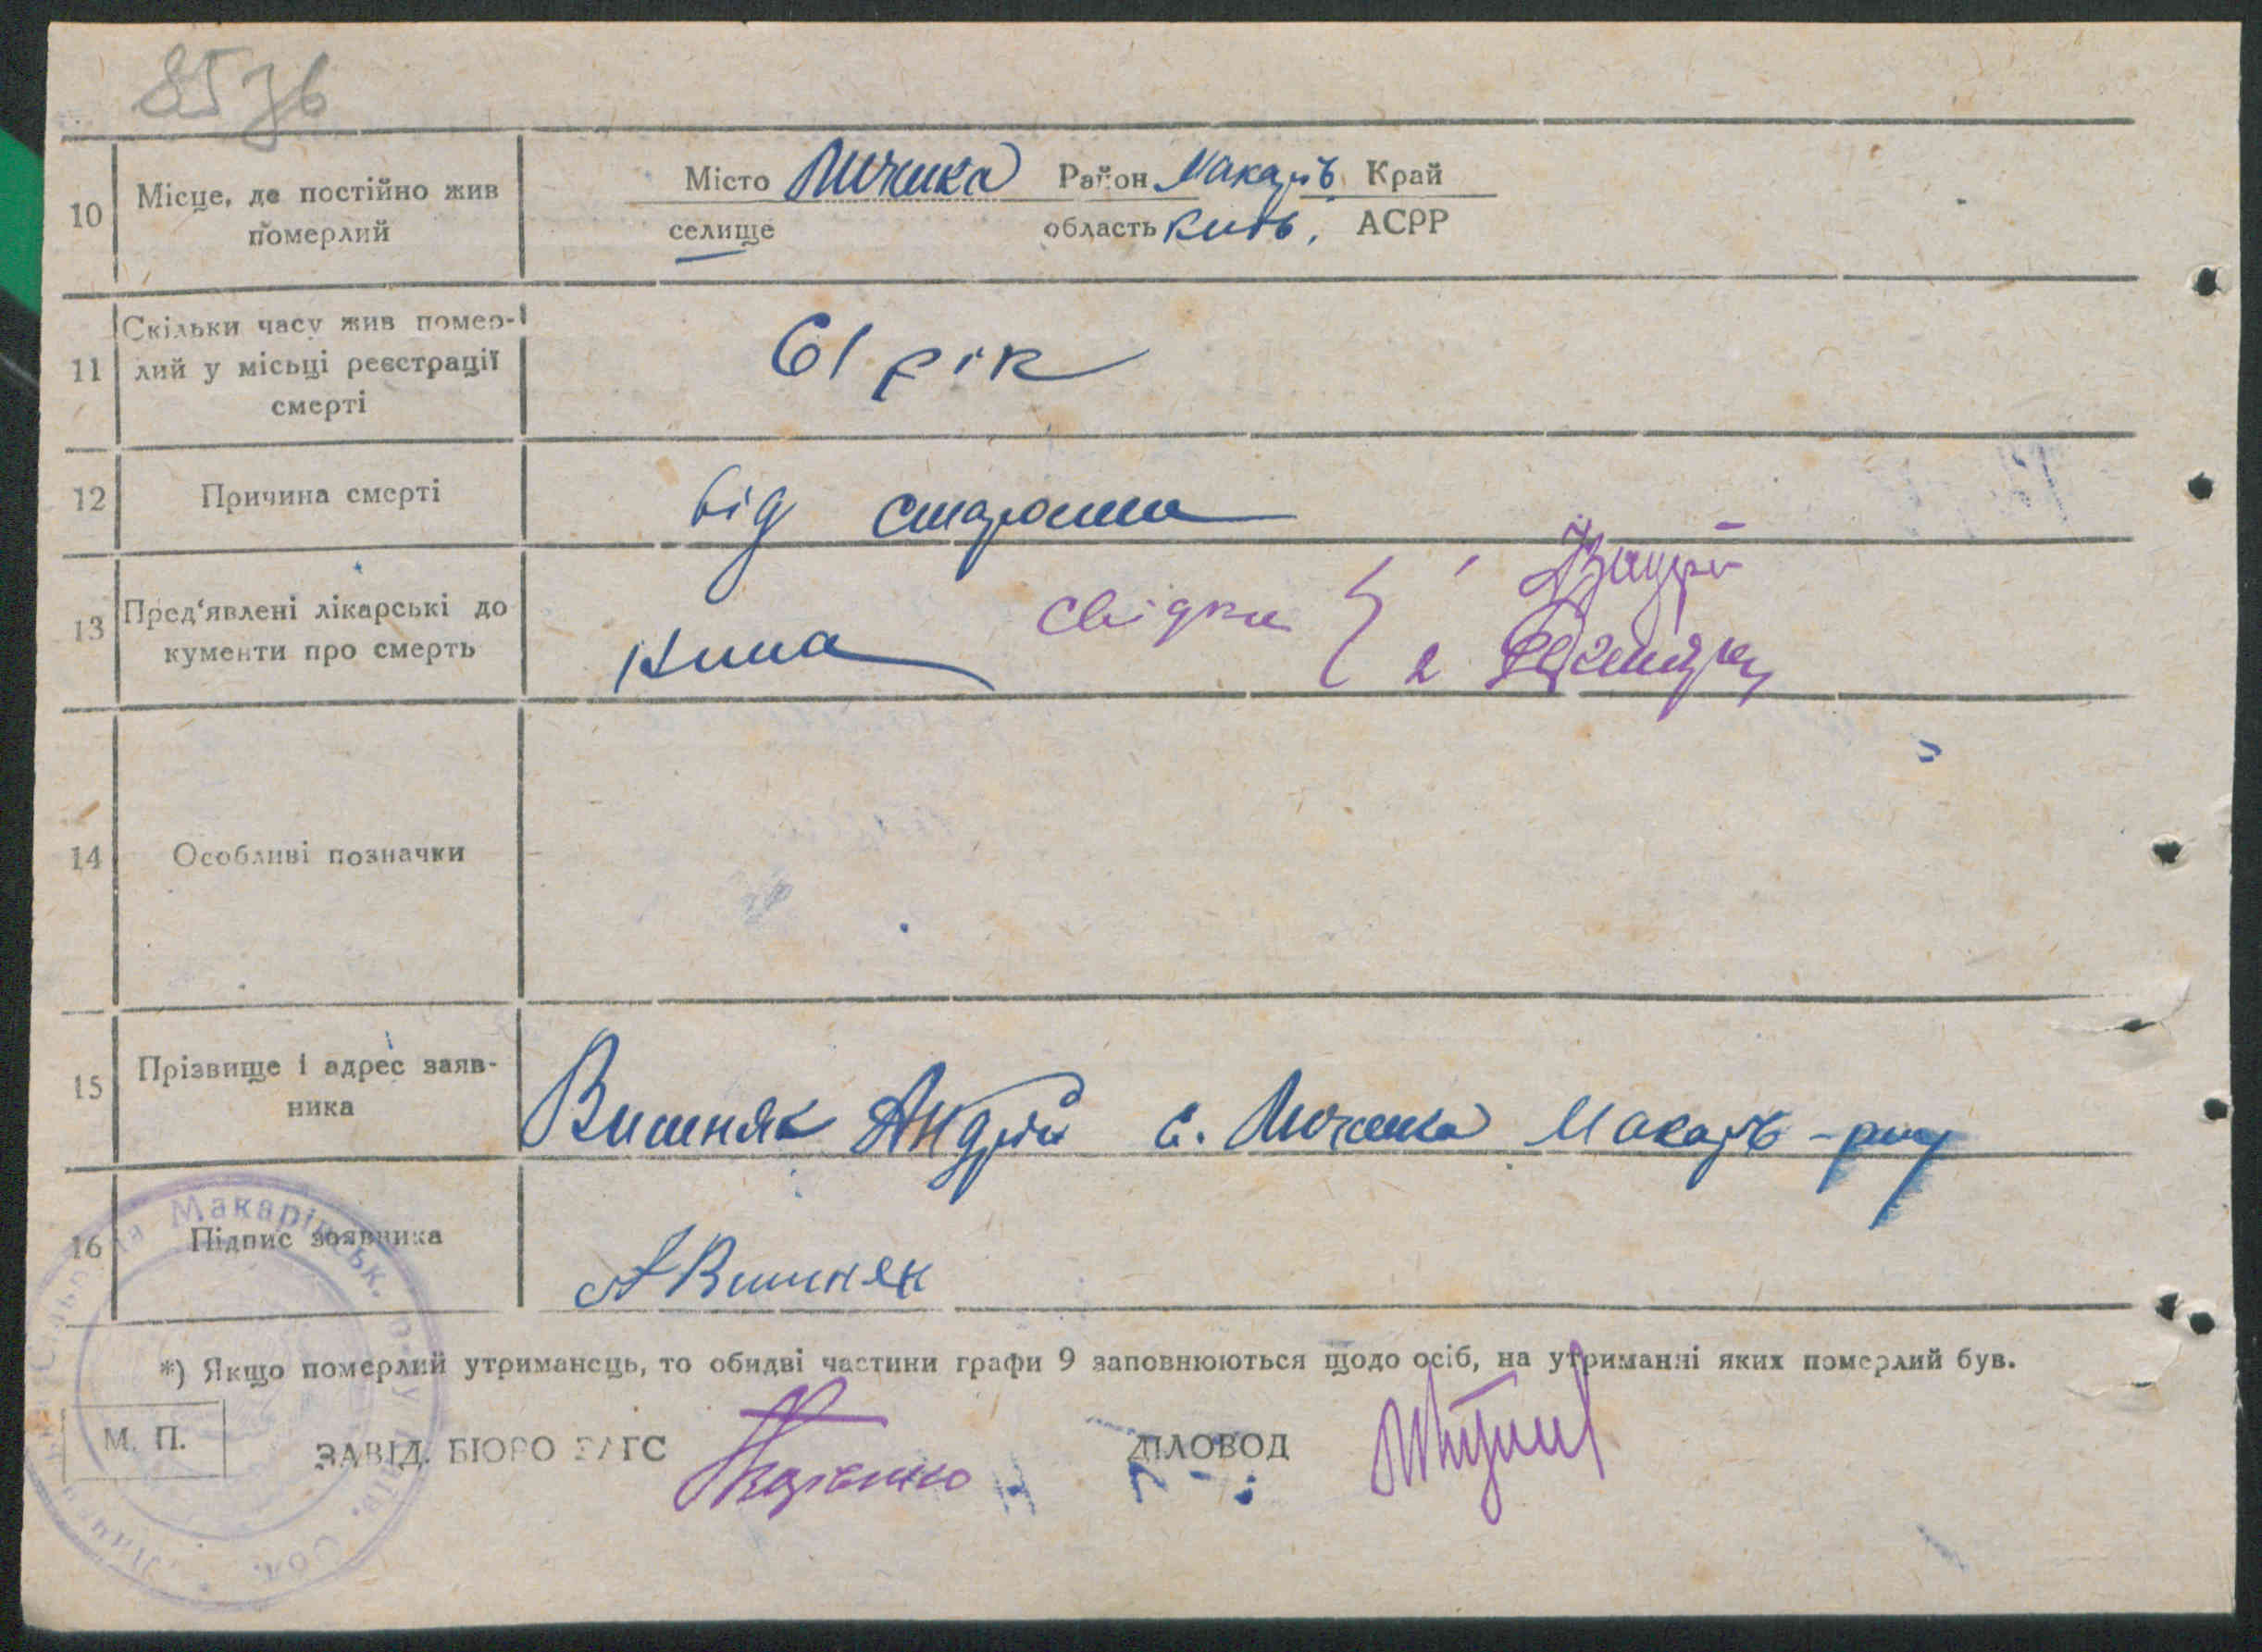 8576
10 Місце, де постійно жив померлий
Місто Личанка Район Макарів Край
селище область Київ. АСРР
11 Скільки часу жив помер-
лий у місьці реєстрації
смерті
61 рік
12 Причина смерті
від старости
13 Пред'явлені лікарські до
кументи про смерть
Нема свідки { 1
2
14 Особливі позначки
15 Прізвище і адрес заяв-
ника
Вишняк Андрій с. Личанка Макарів р-ну
16 Підпис зоявника
А Вишняк
*) Якщо померлий утриманець, то обидві частини графи 9 заповнюються щодо осіб, на утриманні яких померлий був.
М. П. ЗАВІД. БЮРО ЗАГС ДІЛОВОД
Макарівськ. р-ну Київ.